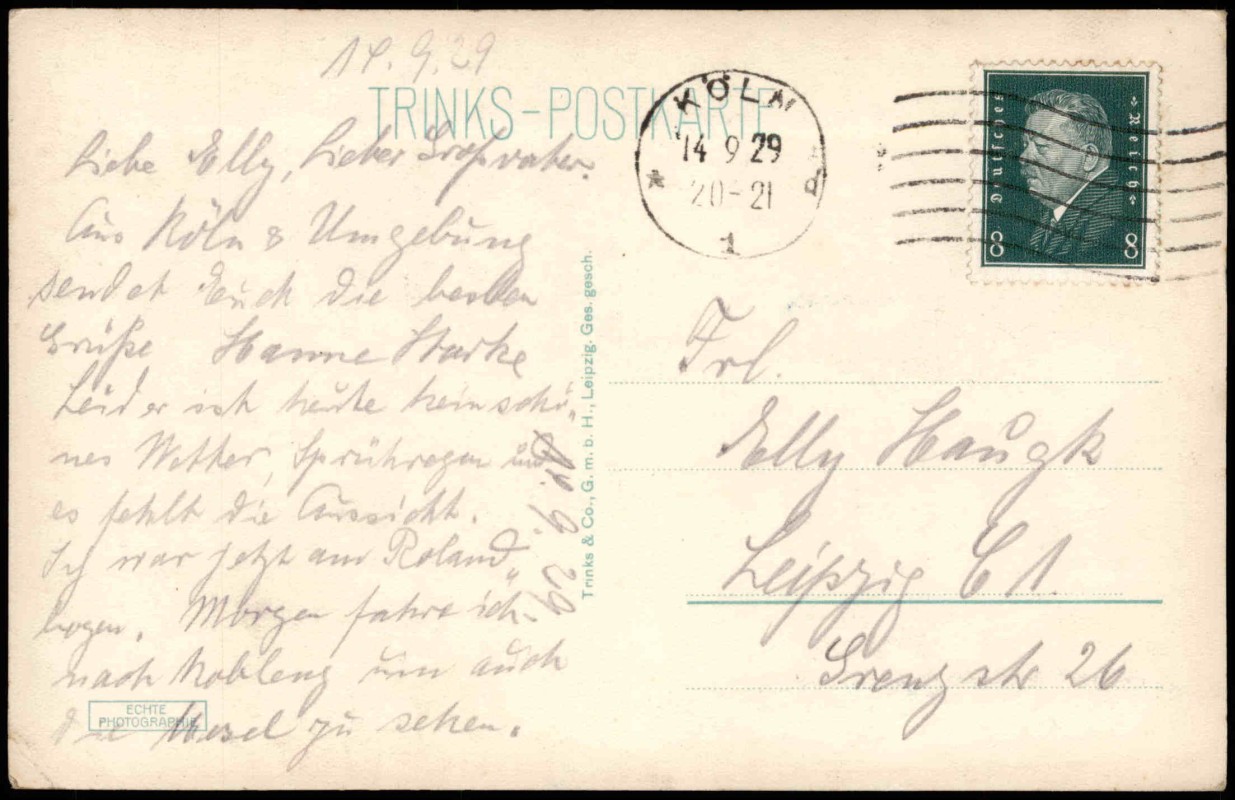 14.9.29
TRINKS-POSTKARTE
Liebe Elly, Lieber Großvater.
Aus Köln & Umgebung
sendet Euch die besten
Grüße Hanne Starke
Leider ist heute kein schö„
nes Wetter, Sprühregen und
es fehlt die Aussicht.
Ich war jetzt am Roland„
bogen. Morgen fahre ich
nach Koblenz um auch
die Mosel zu sehen.
ECHTE
PHOTOGRAPHIE
14. 9. 29.
Trinks & Co., G. m. b. H., Leipzig. Ges. gesch.
KÖLN
14 9 29
20-21
* 1 d
Deutsches Reich
8 8
Frl.
Elly Haugk
Leipzig C 1.
Grenzstr 26